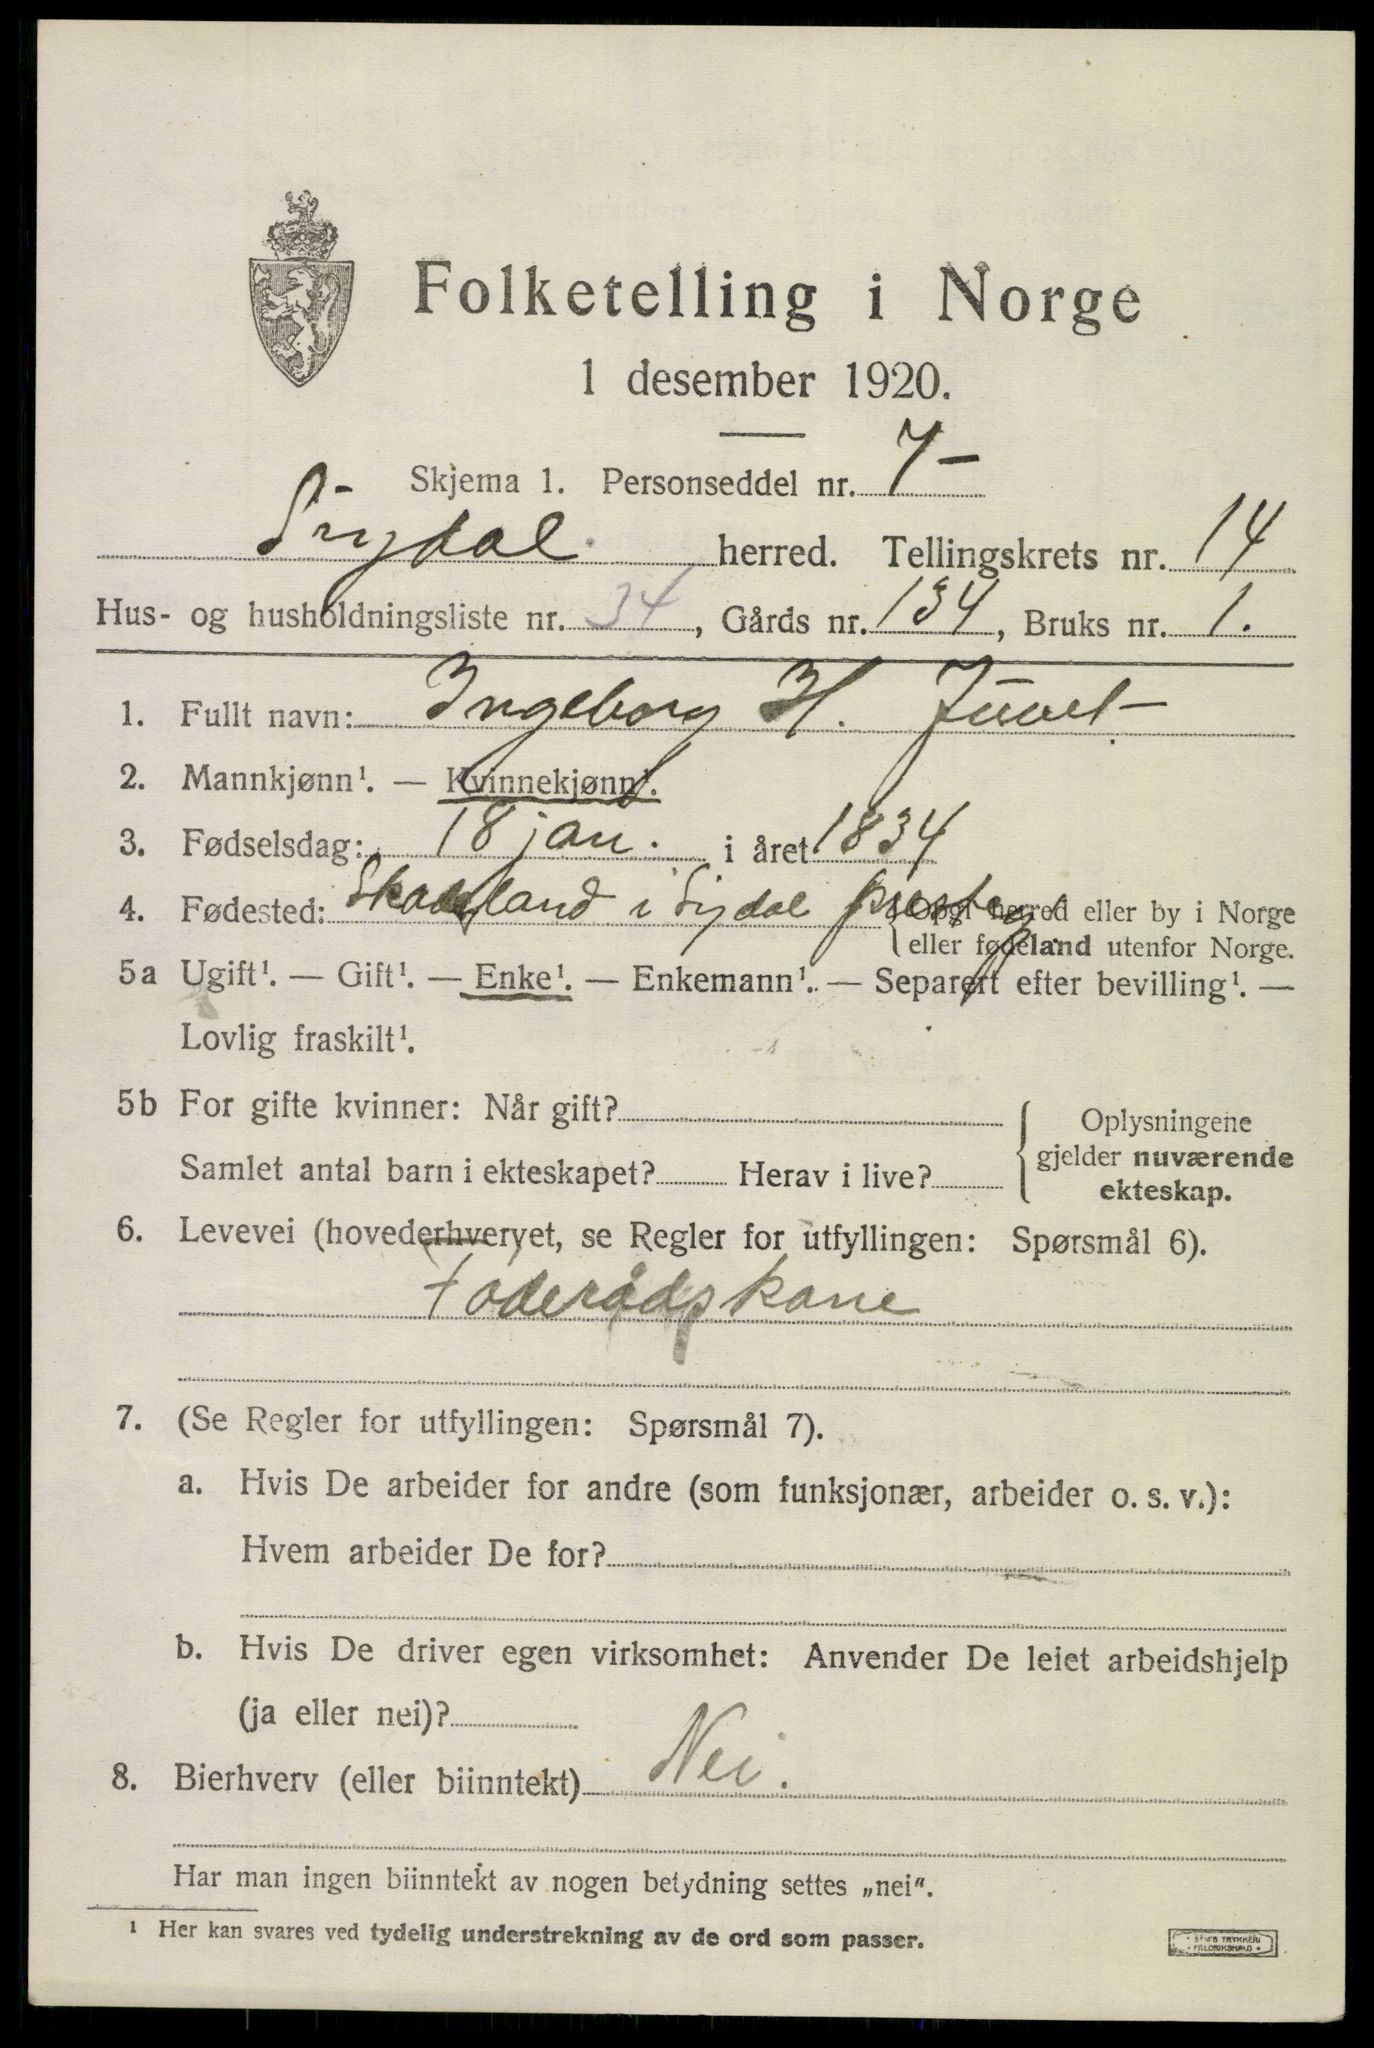 Folketelling i Norge
1 desember 1920.
Skjema 1. Personseddel nr. 7-
Sigdal herred. Tellingskrets nr. 14
Hus- og husholdningsliste nr. 34, Gårds nr. 134, Bruks nr. 1.
1. Fullt navn: Ingeborg H. Juvet
2. Mannkjønn¹. — Kvinnekjønn¹.
3. Fødselsdag: 18 jan. i året 1834
4. Fødested: i Sigdal prestegj. {Opgi herred eller by i Norge
eller fødeland utenfor Norge.
5a Ugift¹. — Gift¹. — Enke¹. — Enkemann¹. — Separert efter bevilling¹. —
Lovlig fraskilt¹.
5b For gifte kvinner: Når gift?
Samlet antal barn i ekteskapet? Herav i live?
{ Oplysningene
gjelder nuværende
ekteskap.
6. Levevei (hovederhvervet, se Regler for utfyllingen: Spørsmål 6).
Føderådskone
7. (Se Regler for utfyllingen: Spørsmål 7).
a. Hvis De arbeider for andre (som funksjonær, arbeider o. s. v.):
Hvem arbeider De for?
b. Hvis De driver egen virksomhet: Anvender De leiet arbeidshjelp
(ja eller nei)?
8. Bierhverv (eller biinntekt) Nei.
Har man ingen biinntekt av nogen betydning settes „nei“.
¹ Her kan svares ved tydelig understrekning av de ord som passer.
TRYKKERI
FREDRIKSHALD